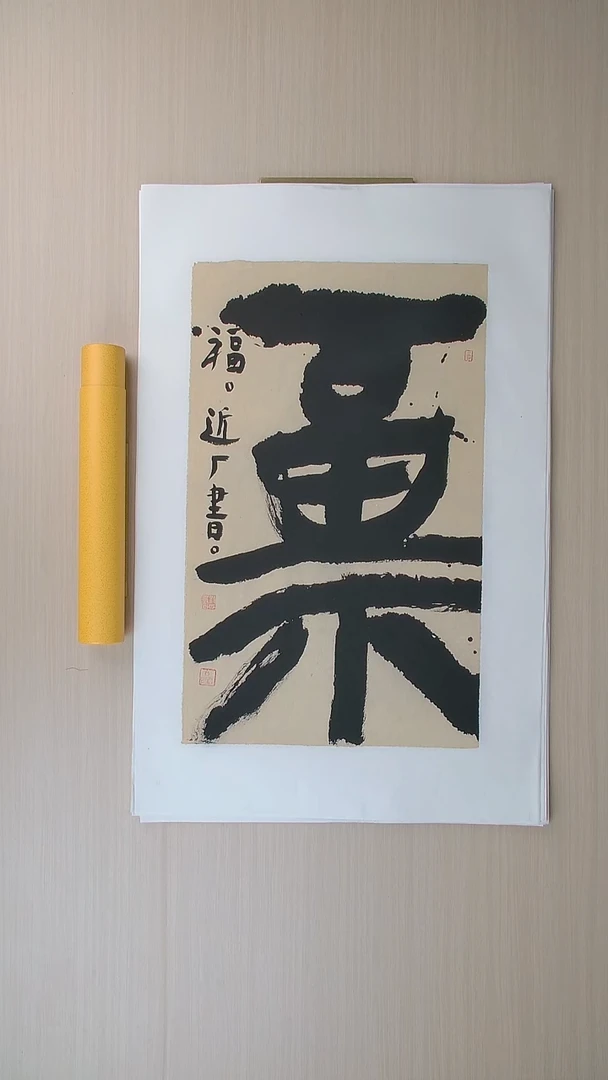 福
福。近厂書。